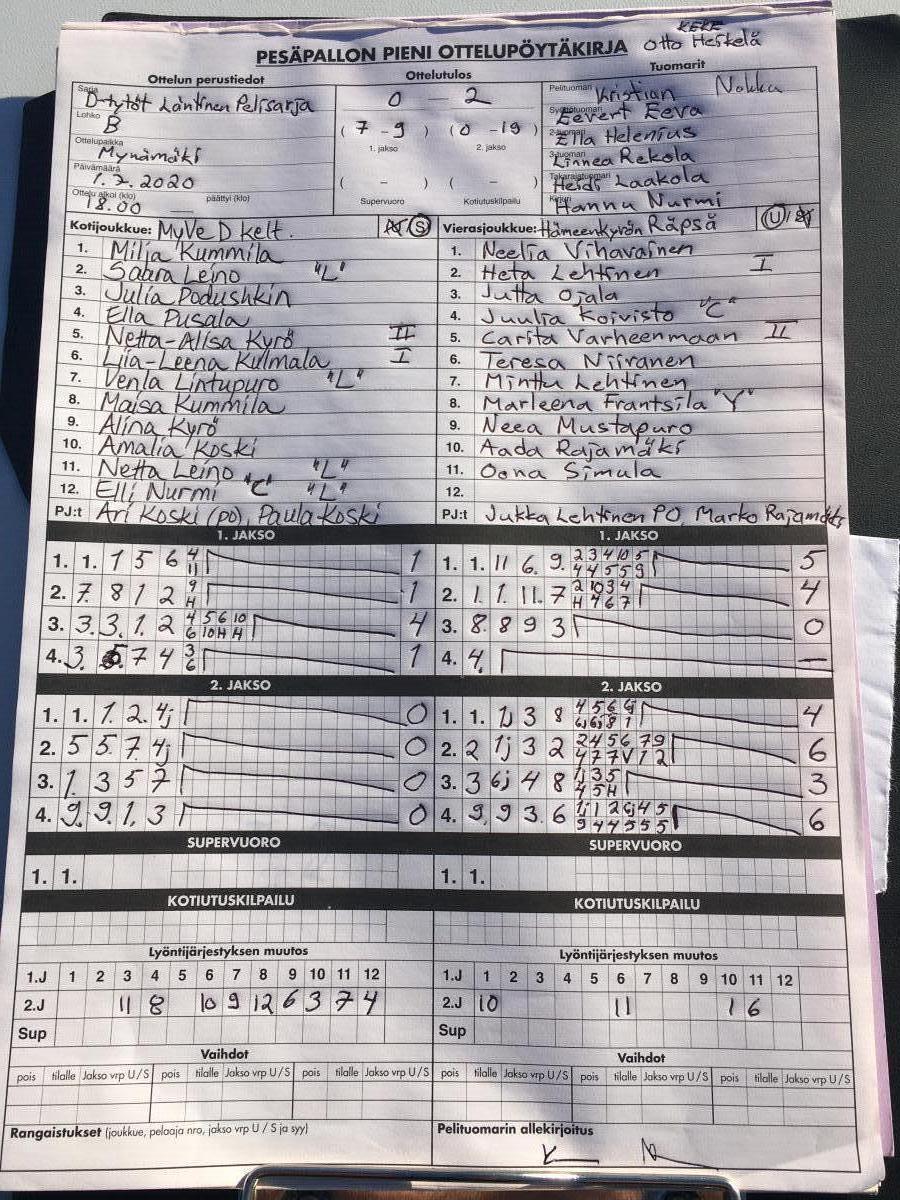 KEKE
PESÄPALLON PIENI OTTELUPÖYTÄKIRJA Otto Heikelä
Ottelun perustiedot Ottelutulos Tuomarit
Sarja D-tytöt Läntinen Pelisarja 0 - 2 Pelituomari Kristian Nokka
Lohko B (7-9) (0-19) Syöttötuomari Eevert Eeva
1. jakso 2. jakso 2-tuomari Ella Helenius
Ottelupaikka Mynämäki 3-tuomari Linnea Rekola
Päivämäärä 1.7.2020 ( - ) ( - ) Takarajatuomari Heidi Laakola
Ottelu alkoi (klo) 18.00 päättyi (klo) — Supervuoro Kotiutuskilpailu Kirjuri Hannu Nurmi
Kotijoukkue: MyVe D kelt. S Vierasjoukkue: Hämeenkyrön Räpsä U
1. Milja Kummila 1. Neelia Vihavainen
2. Saara Leino "L" 2. Heta Lehtinen I
3. Julia Podushkin 3. Jutta Ojala
4. Ella Pusala 4. Juulia Koivisto "C"
5. Netta-Alisa Kyrö II 5. Carita Varheenmaan II
6. Liia-Leena Kulmala I 6. Teresa Niiranen
7. Venla Lintupuro "L" 7. Minttu Lehtinen
8. Maisa Kummila 8. Marleena Frantsila "Y"
9. Alina Kyrö 9. Neea Mustapuro
10. Amalia Koski 10. Aada Rajamäki
11. Netta Leino "L" 11. Oona Simula
12. Elli Nurmi "C" "L" 12.
PJ:t Ari Koski (PO), Paula Koski PJ:t Jukka Lehtinen PO, Marko Rajamäki
1. JAKSO 1. JAKSO
1. 1. 1 5 6 4 11 1 1. 1. 11 6. 9. 2 3 4 10 5 4 4 5 5 9 5
2. 7. 8 1 2 9 H 1 2. 1. 1. 11. 7 2 10 3 4 H 4 6 7 4
3. 3. 3. 1. 2 4 5 6 10 6 10 H H 4 3. 8. 8 9 3 0
4. 3. 7 4 3 6 1 4. 4. —
2. JAKSO 2. JAKSO
1. 1. 1. 2. 4j 0 1. 1. 1j 3 8 4 5 6 9 6j 6j 8 1 4
2. 5 5. 7. 4j 0 2. 2 1j 3 2 2 4 5 6 7 9 4 7 7 V 1 2 6
3. 1. 3 5 7 0 3. 3 6j 4 8 1j 3 5 4 5 H 3
4. 9. 9. 1. 3 0 4. 9, 9 3. 6 1j 1 2 6j 4 5 9 4 4 5 5 5 6
SUPERVUORO SUPERVUORO
1. 1. 1. 1.
KOTIUTUSKILPAILU KOTIUTUSKILPAILU
Lyöntijärjestyksen muutos Lyöntijärjestyksen muutos
1.J 1 2 3 4 5 6 7 8 9 10 11 12 1.J 1 2 3 4 5 6 7 8 9 10 11 12
2.J 11 8 10 9 12 6 3 7 4 2.J 10 11 1 6
Sup Sup
Vaihdot Vaihdot
pois tilalle Jakso vrp U / S pois tilalle Jakso vrp U / S pois tilalle Jakso vrp U / S pois tilalle Jakso vrp U / S pois tilalle Jakso vrp U / S pois tilalle Jakso vrp U / S
Rangaistukset (joukkue, pelaaja nro, jakso vrp U / S ja syy) Pelituomarin allekirjoitus
K N